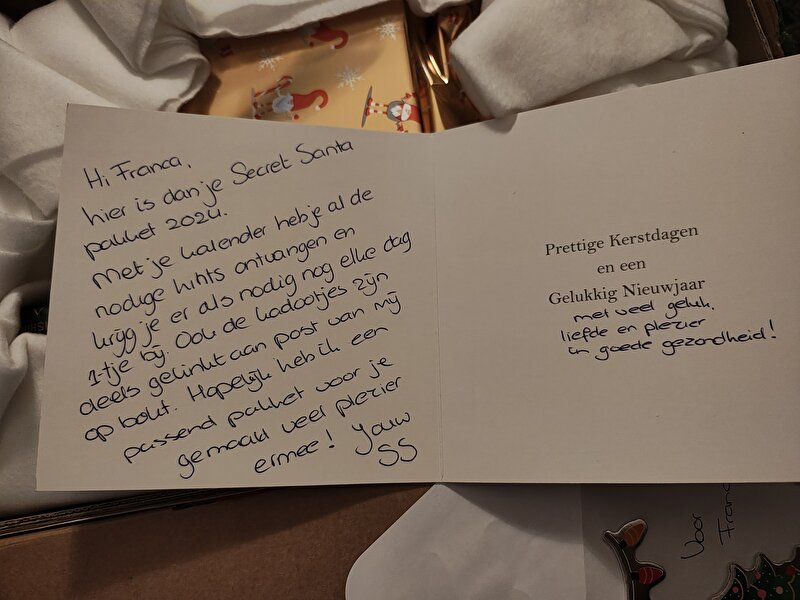 Hi Franca,
hier is dan je Secret Santa
pakket 2024.
Met je kalender heb je al de
nodige hints ontvangen en
krijg je er als nodig nog elke dag
1-tje bij. Ook de kadootjes zijn
deels gelinkt aan post van mij
op bokt. Hopelijk heb ik een
passend pakket voor je
gemaakt veel plezier
ermee! Jouw
SS
Prettige Kerstdagen
en een
Gelukkig Nieuwjaar
met veel geluk,
liefde en plezier
in goede gezondheid!
Voor
Franc